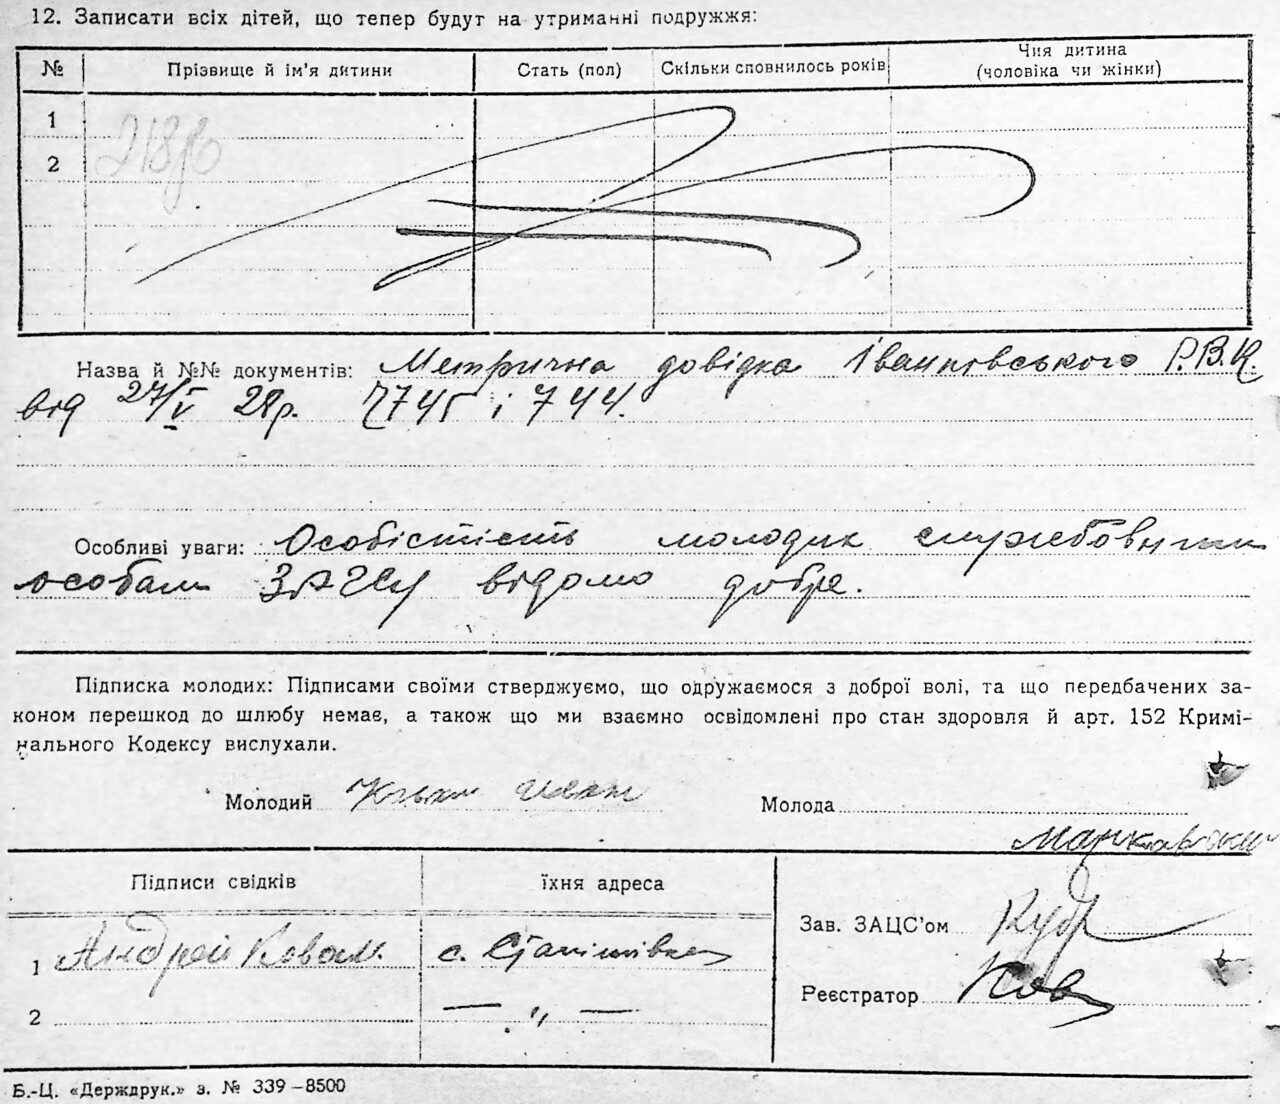 12. Записати всіх дітей, що тепер будут на утриманні подружжя:
№ Прізвище й ім'я дитини Стать (пол) Скільки сповнилось років Чия дитина (чоловіка чи жінки)
1
2
Назва й №№ документів: Метрична довідка Іванківського Р.В.К.
від 27/V 28р. і 744.
Особливі уваги: Особістість молодих службовим
особам ЗАГСу відомо добре.
Підписка молодих: Підписами своїми стверджуємо, що одружаємося з доброї волі, та що передбачених за-
коном перешкод до шлюбу немає, а також що ми взаємно освідомлені про стан здоровля й арт. 152 Кримі-
нального Кодексу вислухали.
Молодий Молода
Підписи свідків їхня адреса
Зав. ЗАЦС'ом Кубр
1 Андрей Ковал. с. Станішівка
Реєстратор Ков
2 — „ —
Б.-Ц. «Держдрук.» з. № 339–8500